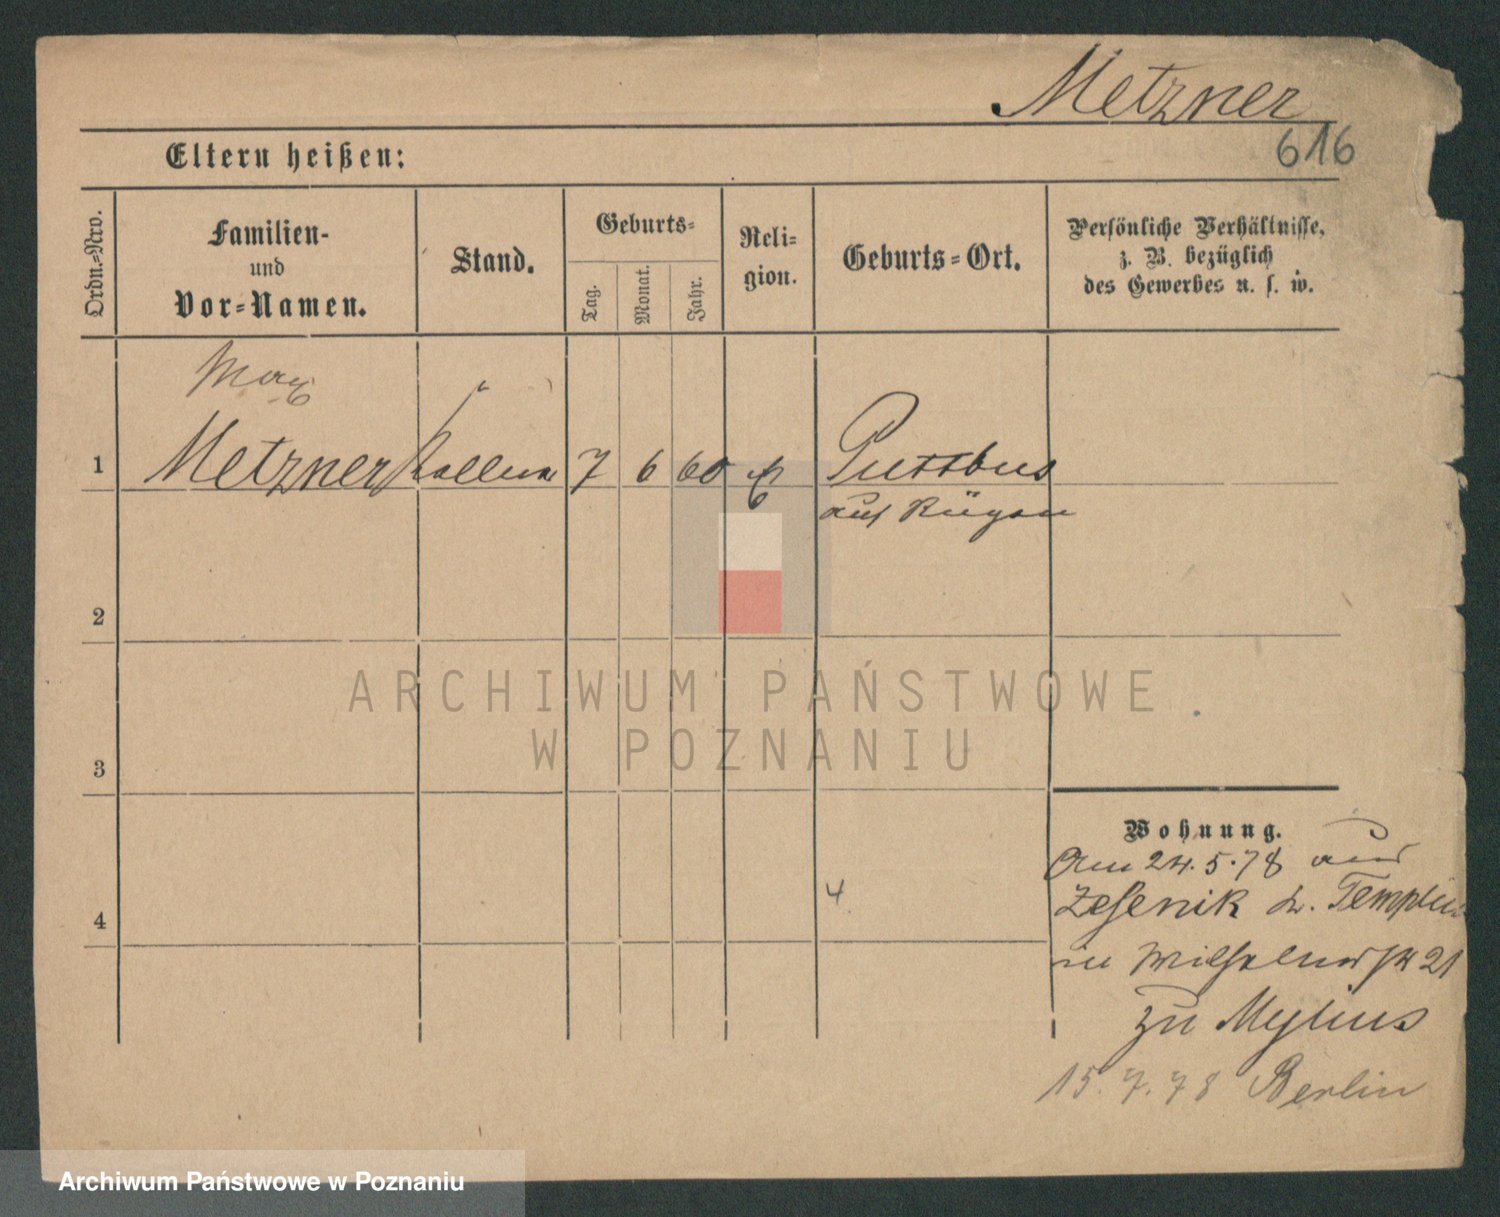 Metzner
616
Eltern heißen:
Ordn.-Nro.
Familien-
und
Vor-Namen.
Stand.
Geburts-
Tag.
Monat.
Jahr.
Reli-
gion.
Geburts-Ort.
Persönliche Verhältnisse,
z. B. bezüglich
des Gewerbes u. s. w.
Max
1 Metzner Kellner 7 6 60 Puttbus
auf Rügen
2
ARCHIWUM PAŃSTWOWE
W POZNANIU
3
Wohnung.
Am 24.5.78 aus
Zehenik Templin
in Wilhelmstr 21
zu Mylius
4
4
15.7.78 Berlin
Archiwum Państwowe w Poznaniu